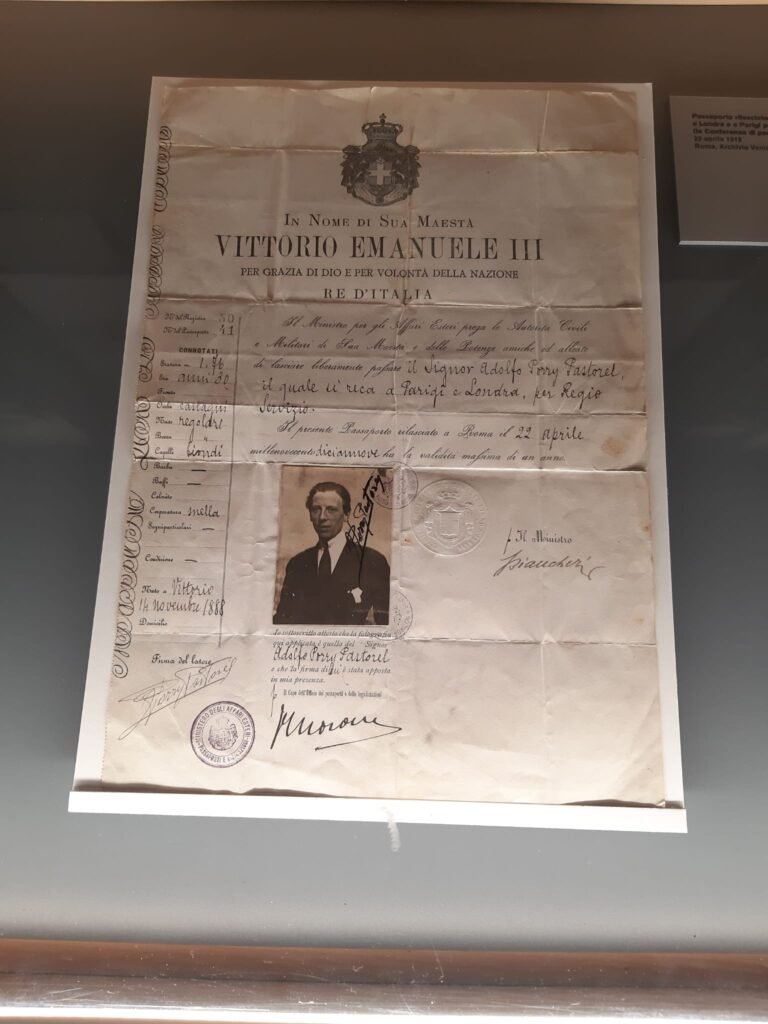 In Nome di Sua Maestà
VITTORIO EMANUELE III
PER GRAZIA DI DIO E PER VOLONTÀ DELLA NAZIONE
RE D'ITALIA
N.º del Registro 30
N.º del Passaporto 41
CONNOTATI
Statura 1,76
Età anni 30
Fronte
Occhi castagni
Naso regolare
Bocca "
Capelli biondi
Barba —
Baffi —
Colorito
Corporatura snella
Segni particolari —
Condizione —
Nato a Vittorio
14 Novembre 1888
Domicilio
Firma del latore
Porry Pastorel
MINISTERO DEGLI AFFARI ESTERI
Il Ministro per gli Affari Esteri prega le Autorità Civili
e Militari di Sua Maestà e delle Potenze amiche ed alleate
di lasciare liberamente passare il Signor Adolfo Porry Pastorel,
il quale si reca a Parigi e Londra, per Regio
Servizio.
Il presente Passaporto rilasciato a Roma il 22 aprile
millenovecentodiciannove ha la validità massima di un anno.
Porry Pastorel
p. Il Ministro
Io sottoscritto attesto che la fotografia
qui applicata è quella del Signor
Adolfo Porry Pastorel
e che la firma di è stata apposta
in mia presenza.
p. Il Capo dell'Ufficio dei passaporti e delle legalizzazioni
Passaporto rilasciato
a Londra e a Parigi
la Conferenza di
22 aprile 1919
Roma, Archivio